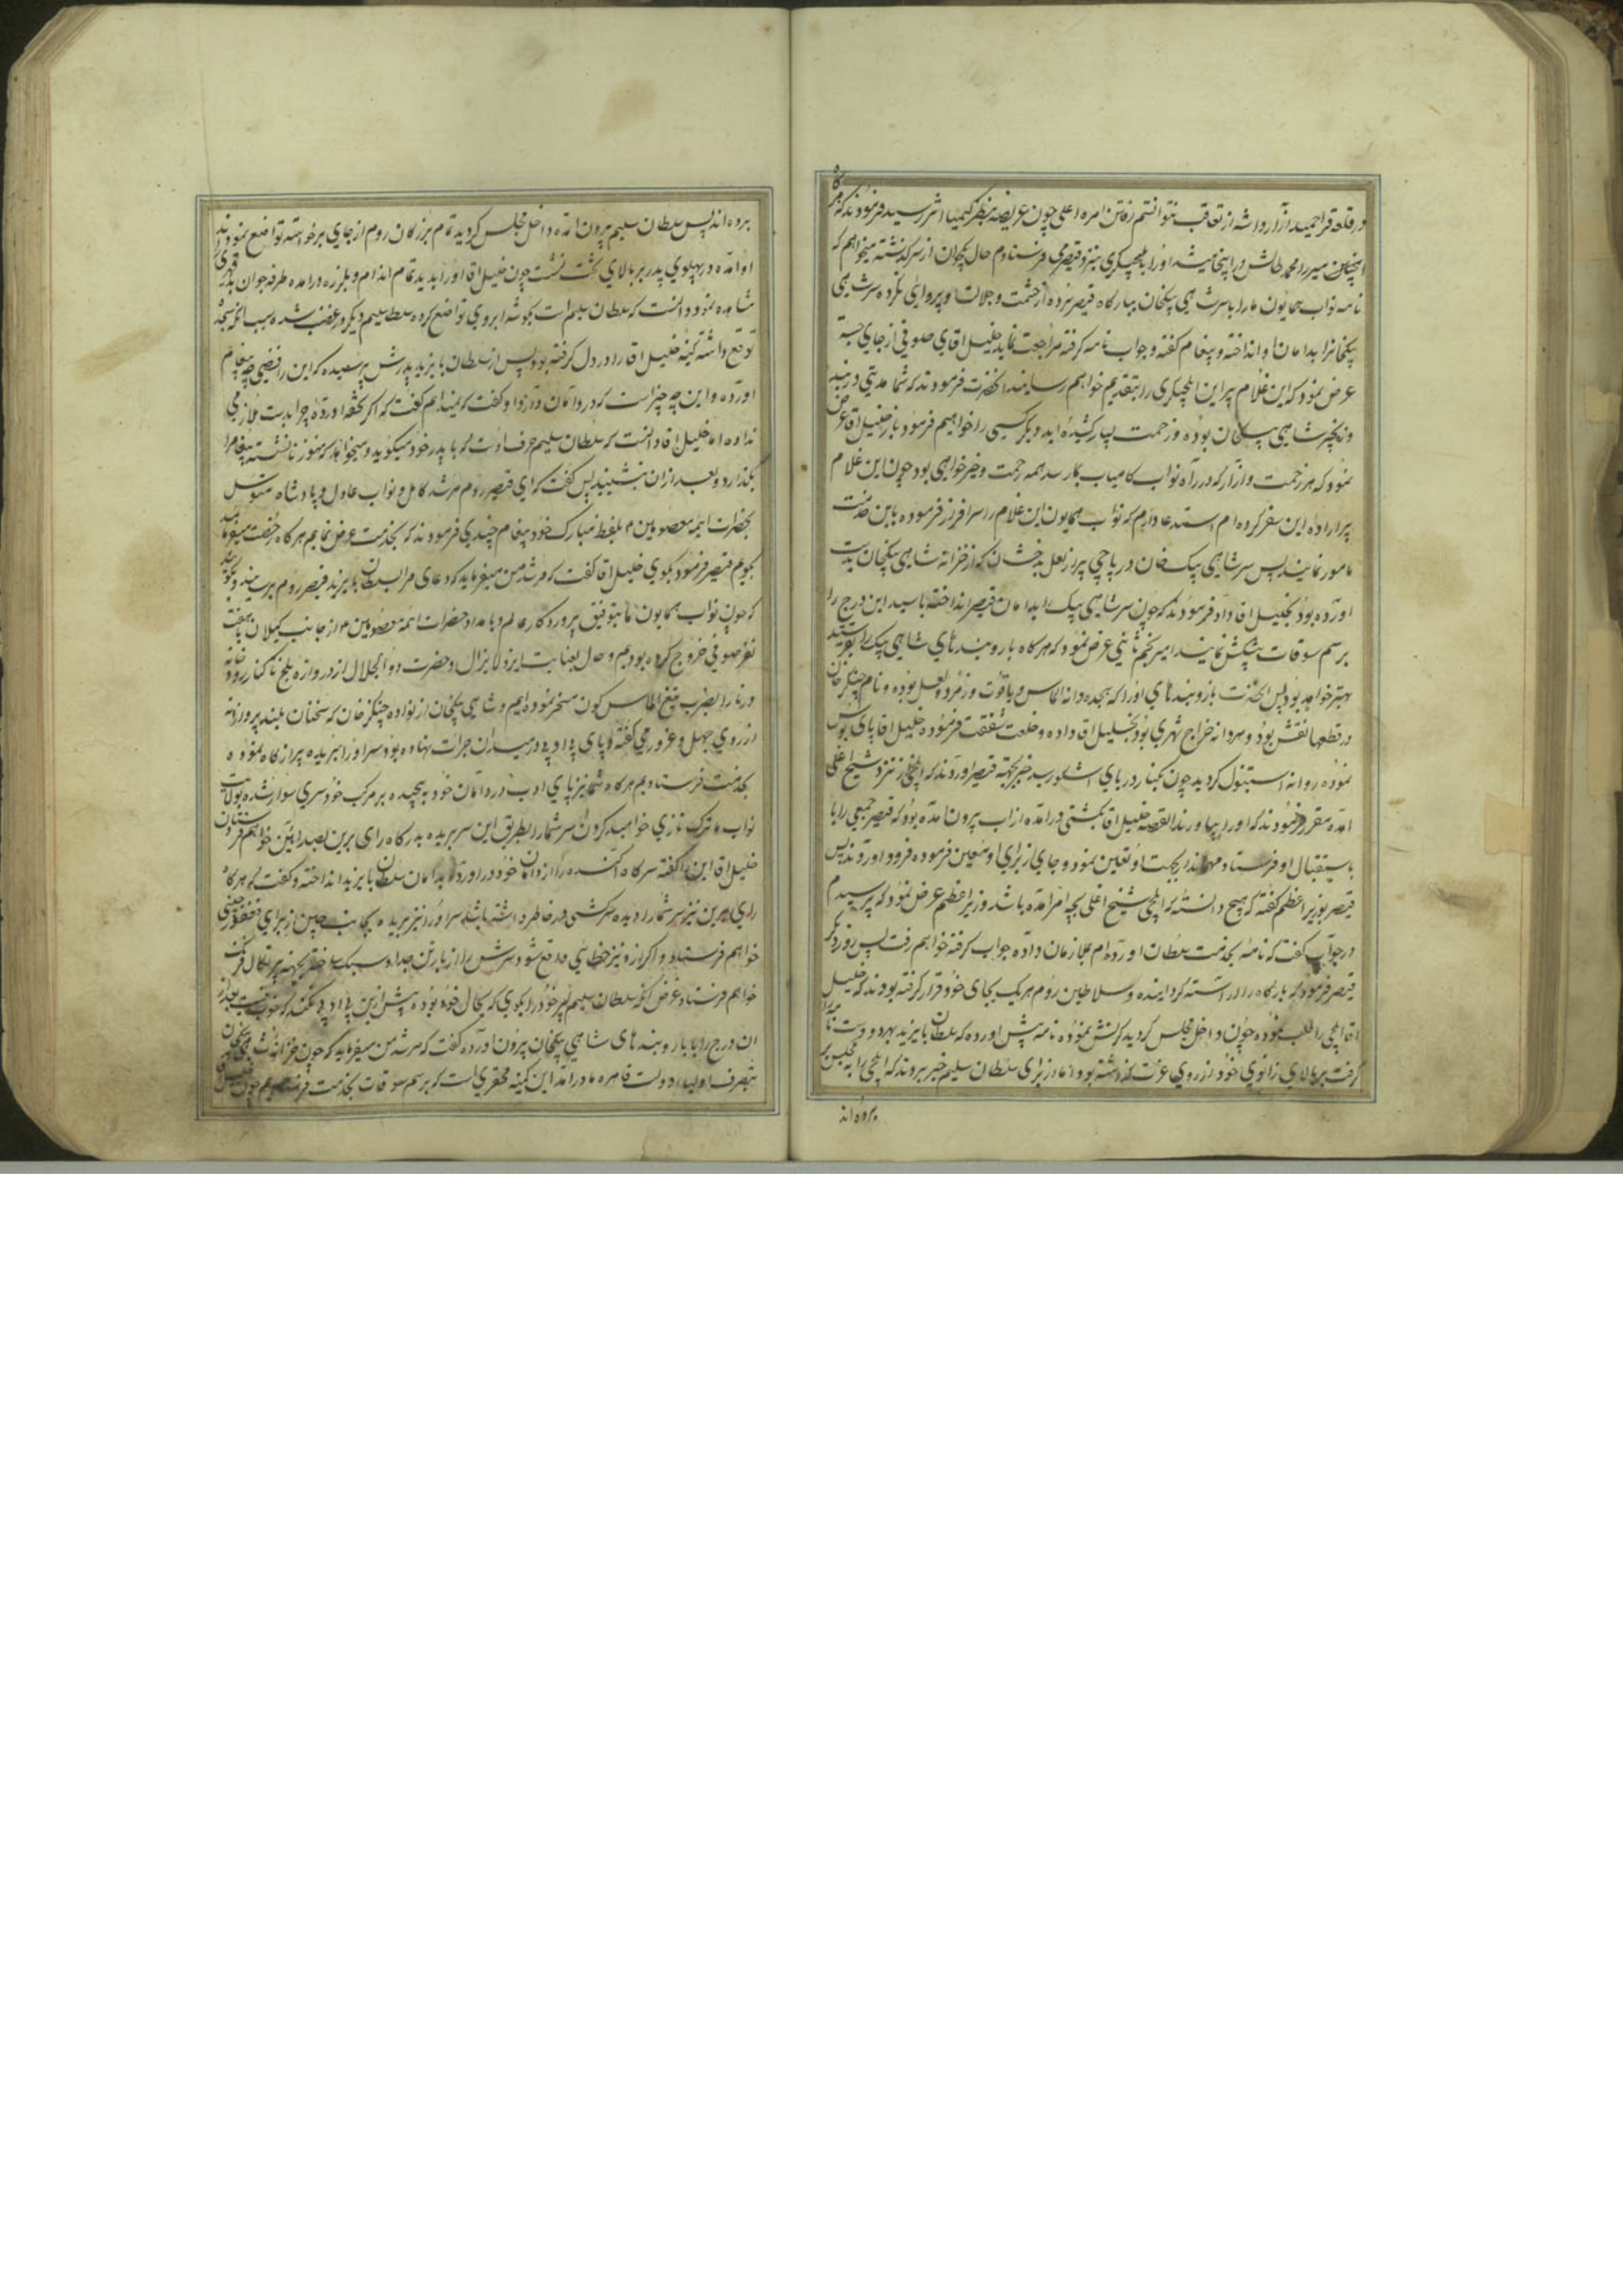 در قلعه قراحمید آزار داشته از تعاقب نتوانستم رفتن امره اعلی چون عریضه بنظر کیمیا اثر رسید فرمودند که کاش
اینچنین میرزا محمد طالش در اینجا میشد او را بایلچیگری بنزد قیصر می فرستادم حال پکجوان از سر گذشته میخواهم که
نامه نواب همایون ما را با سر شاهی بیکخان ببارگاه قیصر برده از حشمت و جلالت او پروایی نکرده سر شاهی
بیکخانرا بدامان او انداخته و پیغام گفته و جواب نامه گرفته مراجعت نماید خلیل اقای صوفی از جای جسته
عرض نمود که این غلام پیر این ایلچیگری را بتقدیم خواهم رسانید انحضرت فرمودند که شما مدتی در بند
و زنجیر شاهی بیکخان بوده و زحمت بسیار کشیده اید دیگر کسی را خواهیم فرمود باز خلیل اقا عرض
نمود که هر زحمت و ازار که در راه نواب کامیاب بما رسد همه رحمت و خیر خواهی بود چون این غلام
پیر اراده این سفر کرده ام استدعا دارم که نواب همایون این غلام را سرافراز فرموده باین خدمت
مامور نمایند پس سر شاهی بیک خان در پاچی پر از لعل بدخشان که از خزانه شاهی بیکخان بدست
اورده بود بخلیل اقا داد فرمودند که چون سر شاهی بیک را بدامان قیصر انداخته باشید این درج را
برسم سوقات پیشکش نمایند امیر نجم ثانی عرض نمود که هرگاه بازوبندهای شاهی بیک را بفرستید
بهتر خواهد بود پس انحضرت بازوبندهای او را که هجده دانه الماس و یاقوت و زمرد و لعل بوده و نام چنگیز خان
در قطعها نقش بود و هر دانه خراج شهری بود بخلیل اقا داده و خلعت شفقت فرموده خلیل اقا پای بوس
نموده روانه استنبول گردید چون بکنار دریای اسکودر رسید خبر بجهته قیصر اوردند که ایلچی از نزد شیخ اغلی
امده مقرر فرمودند که او را بیاورند القصه خلیل اقا بکشتی درامده از اب بیرون امده بود که قیصر جمعی را با
باستقبال او فرستاد مهماندار بجهت او تعیین نمود و جای از برای او معین فرموده فرود اوردند پس
قیصر بوزیر اعظم گفته که هیچ دانسته که ایلچی شیخ اغلی بچه امر امده باشد وزیر اعظم عرض نمود که پرسیدم
در جواب گفت که نامه بخدمت سلطان اورده ام بملازمان داده جواب گرفته خواهم رفت پس روز دیگر
قیصر فرمود که بارگاه را اراسته گردانیده و سلاطین روم هر یک بجای خود قرار گرفته بودند که خلیل
اقا ایلچی را طلب نموده چون داخل مجلس گردید کرنش نموده نامه پیش اورده که سلطان بایزید بهر دو دست نامه را
گرفت بر بالای زانوی خود از روی عزت گذاشته بود اما از برای سلطان سلیم خبر بردند که ایلچی را به مجلس پدر
برده اند
برده اند پس سلطان سلیم بیرون امده داخل مجلس گردید تمام بزرگان روم از جای برخواسته تواضع نمودند
او امده در پهلوی پدر بر بالای تخت نشست چون خلیل اقا او را بدید تمام اندام او بلرزه درامده طرفه جوان
مشاهده نمود دانست که سلطان سلیم است بگوشه ابروی تواضع کرده سلطان سلیم دیگر در غضب شده سبب انکه سجده
توقع داشته کینه خلیل اقا را در دل گرفته بود پس از سلطان بایزید پدرش پرسیده که این رافضی چه پیغام
اورده و این چه چیز است که در دامان دارد او گفت که نمیدانم گفت که اگر تحفه اورده چرا بدست ملازمی
نداده اما خلیل اقا دانست که سلطان سلیم حرف اوست که با پدر خود میگوید و میخواهد که هنوز ننشسته پیغام را
بگذارد و بعد از ان بنشیند پس گفت که ای قیصر روم مرشد کامل و نواب عادل و پادشاه متوسل
بحضرات ایمه معصومین ع بلفظ مبارک خود پیغام چندی فرمودند که بخدمت عرض نمایم هرگاه رخصت میفرمایید
بگویم قیصر فرمود بگوی خلیل اقا گفت که مرشد من میفرماید که دعای مرا بسلطان بایزید قیصر روم برسانید و بگویید
که چون نواب همایون ما بتوفیق پروردگار عالم و بامداد حضرات ائمه معصومین ع از جانب گیلان با هفت
نفر صوفی خروج کرده بودیم و حال بعنایت ایزد لایزال و حضرت ذو الجلال از دروازه بلخ تا کنار رودخانه
درنا را بضرب تیغ الماس گون مسخر نموده ایم و شاهی بیکخان از نواده چنگیز خان که سخنان بلند پروازانه
از روی جهل و غرور می گفته و پای بی ادبی در میدان جرات نهاده بود سر او را بریده پر از کاه نموده
بخدمت فرستادیم هرگاه شما نیز پای ادب در دامان خود نه پیچیده بر مرکب خودسری سوار شده بولایت
نواب ما ترک تازی خواهید کردن سر شما را بطریق این سر بریده بدرگاه رای برین بصد ایین خواهم فرستادن
خلیل اقا این را گفته سر کاه اکنده را از دامان خود دراورده بدامان سلطان بایزید انداخته و گفت که هرگاه
رای برین نیز سر شما را دیده سرکشی در خاطر داشته باشد سر او را نیز بریده بجانب چین از برای فغفور چینی
خواهم فرستاد و اگر از او نیز خطایی واقع شود سرش را از بار تن جدا و سبک ساخته بجهته پرتکال فرنک
خواهم فرستاد غرض انکه سلطان سلیم پسر خود را بگوی که بحال خود بوده پیش ازین بی ادبی نکند که خوب نیست بعد از
ان درج را با بازوبندهای شاهی بیکخان بیرون اورده گفت که مرشد من میفرماید که چون خزانه شاهی بیکخان
بتصرف اولیاء دولت قاهره ما درامد این کمینه محقری است که برسم سوقات بخدمت فرستادیم چون